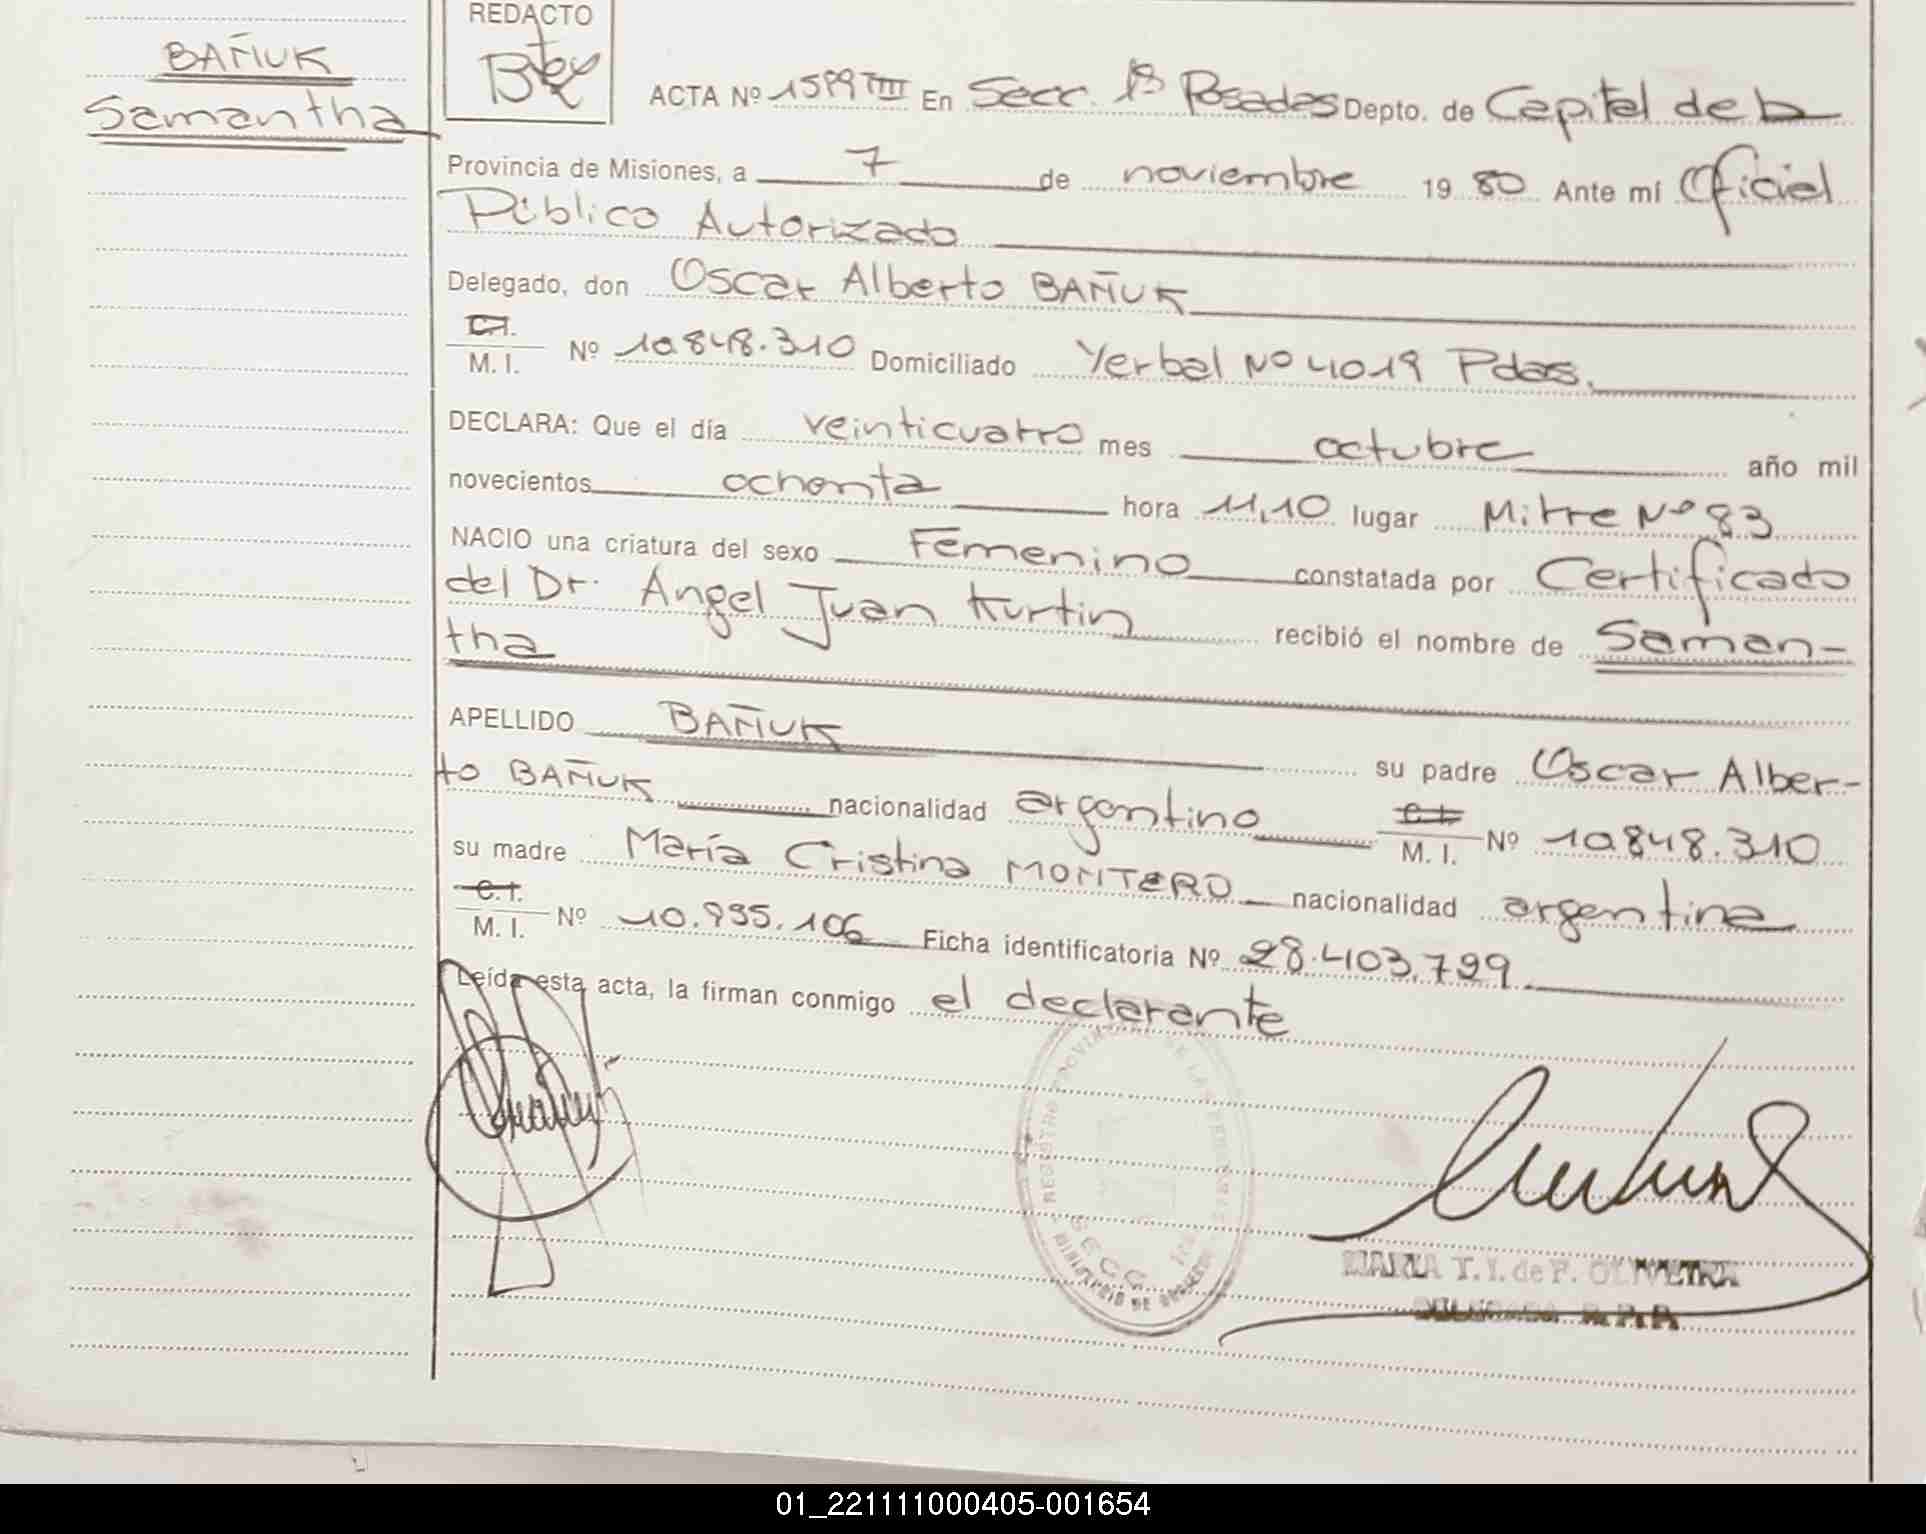 BAÑUK
Samantha
REDACTO
ACTA Nº 1599 TIII En Secc. 1ª Posadas Depto. de Capital de la
Provincia de Misiones, a 7 de noviembre 19 80 Ante mí Oficial
Público Autorizado
Delegado, don Oscar Alberto BAÑUK
C.I.
M. I. Nº 10.848.310 Domiciliado Yerbal Nº 4019 Pdas.
DECLARA: Que el día veinticuatro mes octubre año mil
novecientos ochenta hora 11,10 lugar Mitre Nº 83
NACIO una criatura del sexo Femenino constatada por Certificado
del Dr. Angel Juan Kurtin recibió el nombre de Saman-
tha
APELLIDO BAÑUK su padre Oscar Alber-
to BAÑUK nacionalidad argentino C.I. M. I. Nº 10.848.310
su madre María Cristina MONTERO nacionalidad argentina
C.I.
M. I. Nº 10.995.106 Ficha identificatoria Nº 28.403.799
Leída esta acta, la firman conmigo el declarante
REGISTRO PROVINCIAL DE LAS PERSONAS
SECC. 1ra
MINISTERIO DE GOBIERNO
MARIA T. I. de F. OLIVEIRA
DELEGADA R.P.P.
01_221111000405-001654